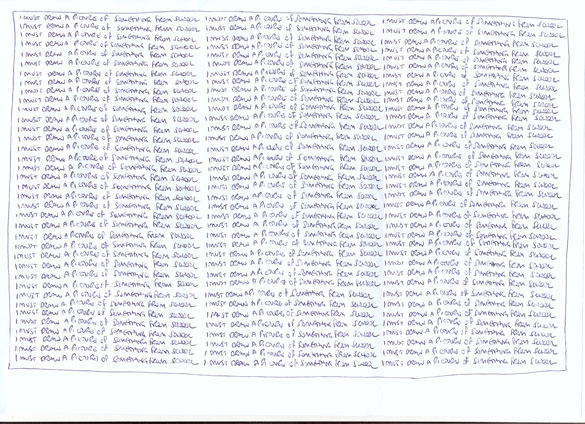 I MUST DRAW A PICURE of SOMETHING FROM SCHOOL I MUST DRAW A PICURE of SOMETHING FROM SCHOOL I MUST DRAW A PICURE of SOMETHING FROM SCHOOL
I MUST DRAW A PICURE of SOMETHING FROM SCHOOL I MUST DRAW A PICURE of SOMETHING FROM SCHOOL I MUST DRAW A PICURE of SOMETHING FROM SCHOOL
I MUST DRAW A PICURE of SOMETHING FROM SCHOOL I MUST DRAW A PICURE of SOMETHING FROM SCHOOL I MUST DRAW A PICURE of SOMETHING FROM SCHOOL
I MUST DRAW A PICURE of SOMETHING FROM SCHOOL I MUST DRAW A PICURE of SOMETHING FROM SCHOOL I MUST DRAW A PICURE of SOMETHING FROM SCHOOL
I MUST DRAW A PICURE of SOMETHING FROM SCHOOL I MUST DRAW A PICURE of SOMETHING FROM SCHOOL I MUST DRAW A PICURE of SOMETHING FROM SCHOOL
I MUST DRAW A PICURE of SOMETHING FROM SCHOOL I MUST DRAW A PICURE of SOMETHING FROM SCHOOL I MUST DRAW A PICURE of SOMETHING FROM SCHOOL
I MUST DRAW A PICURE of SOMETHING FROM SCHOOL I MUST DRAW A PICURE of SOMETHING FROM SCHOOL I MUST DRAW A PICURE of SOMETHING FROM SCHOOL
I MUST DRAW A PICURE of SOMETHING FROM SCHOOL I MUST DRAW A PICURE of SOMETHING FROM SCHOOL I MUST DRAW A PICURE of SOMETHING FROM SCHOOL
I MUST DRAW A PICURE of SOMETHING FROM SCHOOL I MUST DRAW A PICURE of SOMETHING FROM SCHOOL I MUST DRAW A PICURE of SOMETHING FROM SCHOOL
I MUST DRAW A PICURE of SOMETHING FROM SCHOOL I MUST DRAW A PICURE of SOMETHING FROM SCHOOL I MUST DRAW A PICURE of SOMETHING FROM SCHOOL
I MUST DRAW A PICURE of SOMETHING FROM SCHOOL I MUST DRAW A PICURE of SOMETHING FROM SCHOOL I MUST DRAW A PICURE of SOMETHING FROM SCHOOL
I MUST DRAW A PICURE of SOMETHING FROM SCHOOL I MUST DRAW A PICURE of SOMETHING FROM SCHOOL I MUST DRAW A PICURE of SOMETHING FROM SCHOOL
I MUST DRAW A PICURE of SOMETHING FROM SCHOOL I MUST DRAW A PICURE of SOMETHING FROM SCHOOL I MUST DRAW A PICURE of SOMETHING FROM SCHOOL
I MUST DRAW A PICURE of SOMETHING FROM SCHOOL I MUST DRAW A PICURE of SOMETHING FROM SCHOOL I MUST DRAW A PICURE of SOMETHING FROM SCHOOL
I MUST DRAW A PICURE of SOMETHING FROM SCHOOL I MUST DRAW A PICURE of SOMETHING FROM SCHOOL I MUST DRAW A PICURE of SOMETHING FROM SCHOOL
I MUST DRAW A PICURE of SOMETHING FROM SCHOOL I MUST DRAW A PICURE of SOMETHING FROM SCHOOL I MUST DRAW A PICURE of SOMETHING FROM SCHOOL
I MUST DRAW A PICURE of SOMETHING FROM SCHOOL I MUST DRAW A PICURE of SOMETHING FROM SCHOOL I MUST DRAW A PICURE of SOMETHING FROM SCHOOL
I MUST DRAW A PICURE of SOMETHING FROM SCHOOL I MUST DRAW A PICURE of SOMETHING FROM SCHOOL I MUST DRAW A PICURE of SOMETHING FROM SCHOOL
I MUST DRAW A PICURE of SOMETHING FROM SCHOOL I MUST DRAW A PICURE of SOMETHING FROM SCHOOL I MUST DRAW A PICURE of SOMETHING FROM SCHOOL
I MUST DRAW A PICURE of SOMETHING FROM SCHOOL I MUST DRAW A PICURE of SOMETHING FROM SCHOOL I MUST DRAW A PICURE of SOMETHING FROM SCHOOL
I MUST DRAW A PICURE of SOMETHING FROM SCHOOL I MUST DRAW A PICURE of SOMETHING FROM SCHOOL I MUST DRAW A PICURE of SOMETHING FROM SCHOOL
I MUST DRAW A PICURE of SOMETHING FROM SCHOOL I MUST DRAW A PICURE of SOMETHING FROM SCHOOL I MUST DRAW A PICURE of SOMETHING FROM SCHOOL
I MUST DRAW A PICURE of SOMETHING FROM SCHOOL I MUST DRAW A PICURE of SOMETHING FROM SCHOOL I MUST DRAW A PICURE of SOMETHING FROM SCHOOL
I MUST DRAW A PICURE of SOMETHING FROM SCHOOL I MUST DRAW A PICURE of SOMETHING FROM SCHOOL I MUST DRAW A PICURE of SOMETHING FROM SCHOOL
I MUST DRAW A PICURE of SOMETHING FROM SCHOOL I MUST DRAW A PICURE of SOMETHING FROM SCHOOL I MUST DRAW A PICURE of SOMETHING FROM SCHOOL
I MUST DRAW A PICURE of SOMETHING FROM SCHOOL I MUST DRAW A PICURE of SOMETHING FROM SCHOOL I MUST DRAW A PICURE of SOMETHING FROM SCHOOL
I MUST DRAW A PICURE of SOMETHING FROM SCHOOL I MUST DRAW A PICURE of SOMETHING FROM SCHOOL I MUST DRAW A PICURE of SOMETHING FROM SCHOOL
I MUST DRAW A PICURE of SOMETHING FROM SCHOOL I MUST DRAW A PICURE of SOMETHING FROM SCHOOL I MUST DRAW A PICURE of SOMETHING FROM SCHOOL
I MUST DRAW A PICURE of SOMETHING FROM SCHOOL I MUST DRAW A PICURE of SOMETHING FROM SCHOOL I MUST DRAW A PICURE of SOMETHING FROM SCHOOL
I MUST DRAW A PICURE of SOMETHING FROM SCHOOL I MUST DRAW A PICURE of SOMETHING FROM SCHOOL I MUST DRAW A PICURE of SOMETHING FROM SCHOOL
I MUST DRAW A PICURE of SOMETHING FROM SCHOOL I MUST DRAW A PICURE of SOMETHING FROM SCHOOL I MUST DRAW A PICURE of SOMETHING FROM SCHOOL
I MUST DRAW A PICURE of SOMETHING FROM SCHOOL I MUST DRAW A PICURE of SOMETHING FROM SCHOOL I MUST DRAW A PICURE of SOMETHING FROM SCHOOL
I MUST DRAW A PICURE of SOMETHING FROM SCHOOL I MUST DRAW A PICURE of SOMETHING FROM SCHOOL I MUST DRAW A PICURE of SOMETHING FROM SCHOOL
I MUST DRAW A PICURE of SOMETHING FROM SCHOOL I MUST DRAW A PICURE of SOMETHING FROM SCHOOL I MUST DRAW A PICURE of SOMETHING FROM SCHOOL
I MUST DRAW A PICURE of SOMETHING FROM SCHOOL I MUST DRAW A PICURE of SOMETHING FROM SCHOOL I MUST DRAW A PICURE of SOMETHING FROM SCHOOL
I MUST DRAW A PICURE of SOMETHING FROM SCHOOL I MUST DRAW A PICURE of SOMETHING FROM SCHOOL I MUST DRAW A PICURE of SOMETHING FROM SCHOOL
I MUST DRAW A PICURE of SOMETHING FROM SCHOOL I MUST DRAW A PICURE of SOMETHING FROM SCHOOL I MUST DRAW A PICURE of SOMETHING FROM SCHOOL